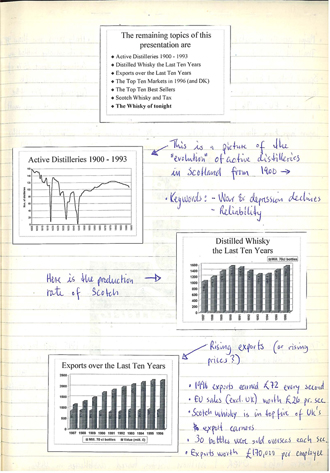 The remaining topics of this
presentation are
Active Distilleries 1900 - 1993
Distilled Whisky the Last Ten Years
Exports over the Last Ten Years
The Top Ten Markets in 1996 (and DK)
The Top Ten Best Sellers
Scotch Whisky and Tax
The Whisky of tonight
Active Distilleries 1900 - 1993
This is a picture of the
"evolution" of active distilleries
in Scotland from 1900 →
• Keywords: - War & depression declines
- Reliability
Distilled Whisky
the Last Ten Years
Here is the production
rate of Scotch
Exports over the Last Ten Years
Rising exports (or rising
prices?)
• 1996 exports earned £72 every second
• EU sales (excl. UK) worth £26 pr. sec
• Scotch whisky is in top five of UK's
export earners
• 30 bottles were sold overseas each sec.
• Exports worth £170,000 per employee